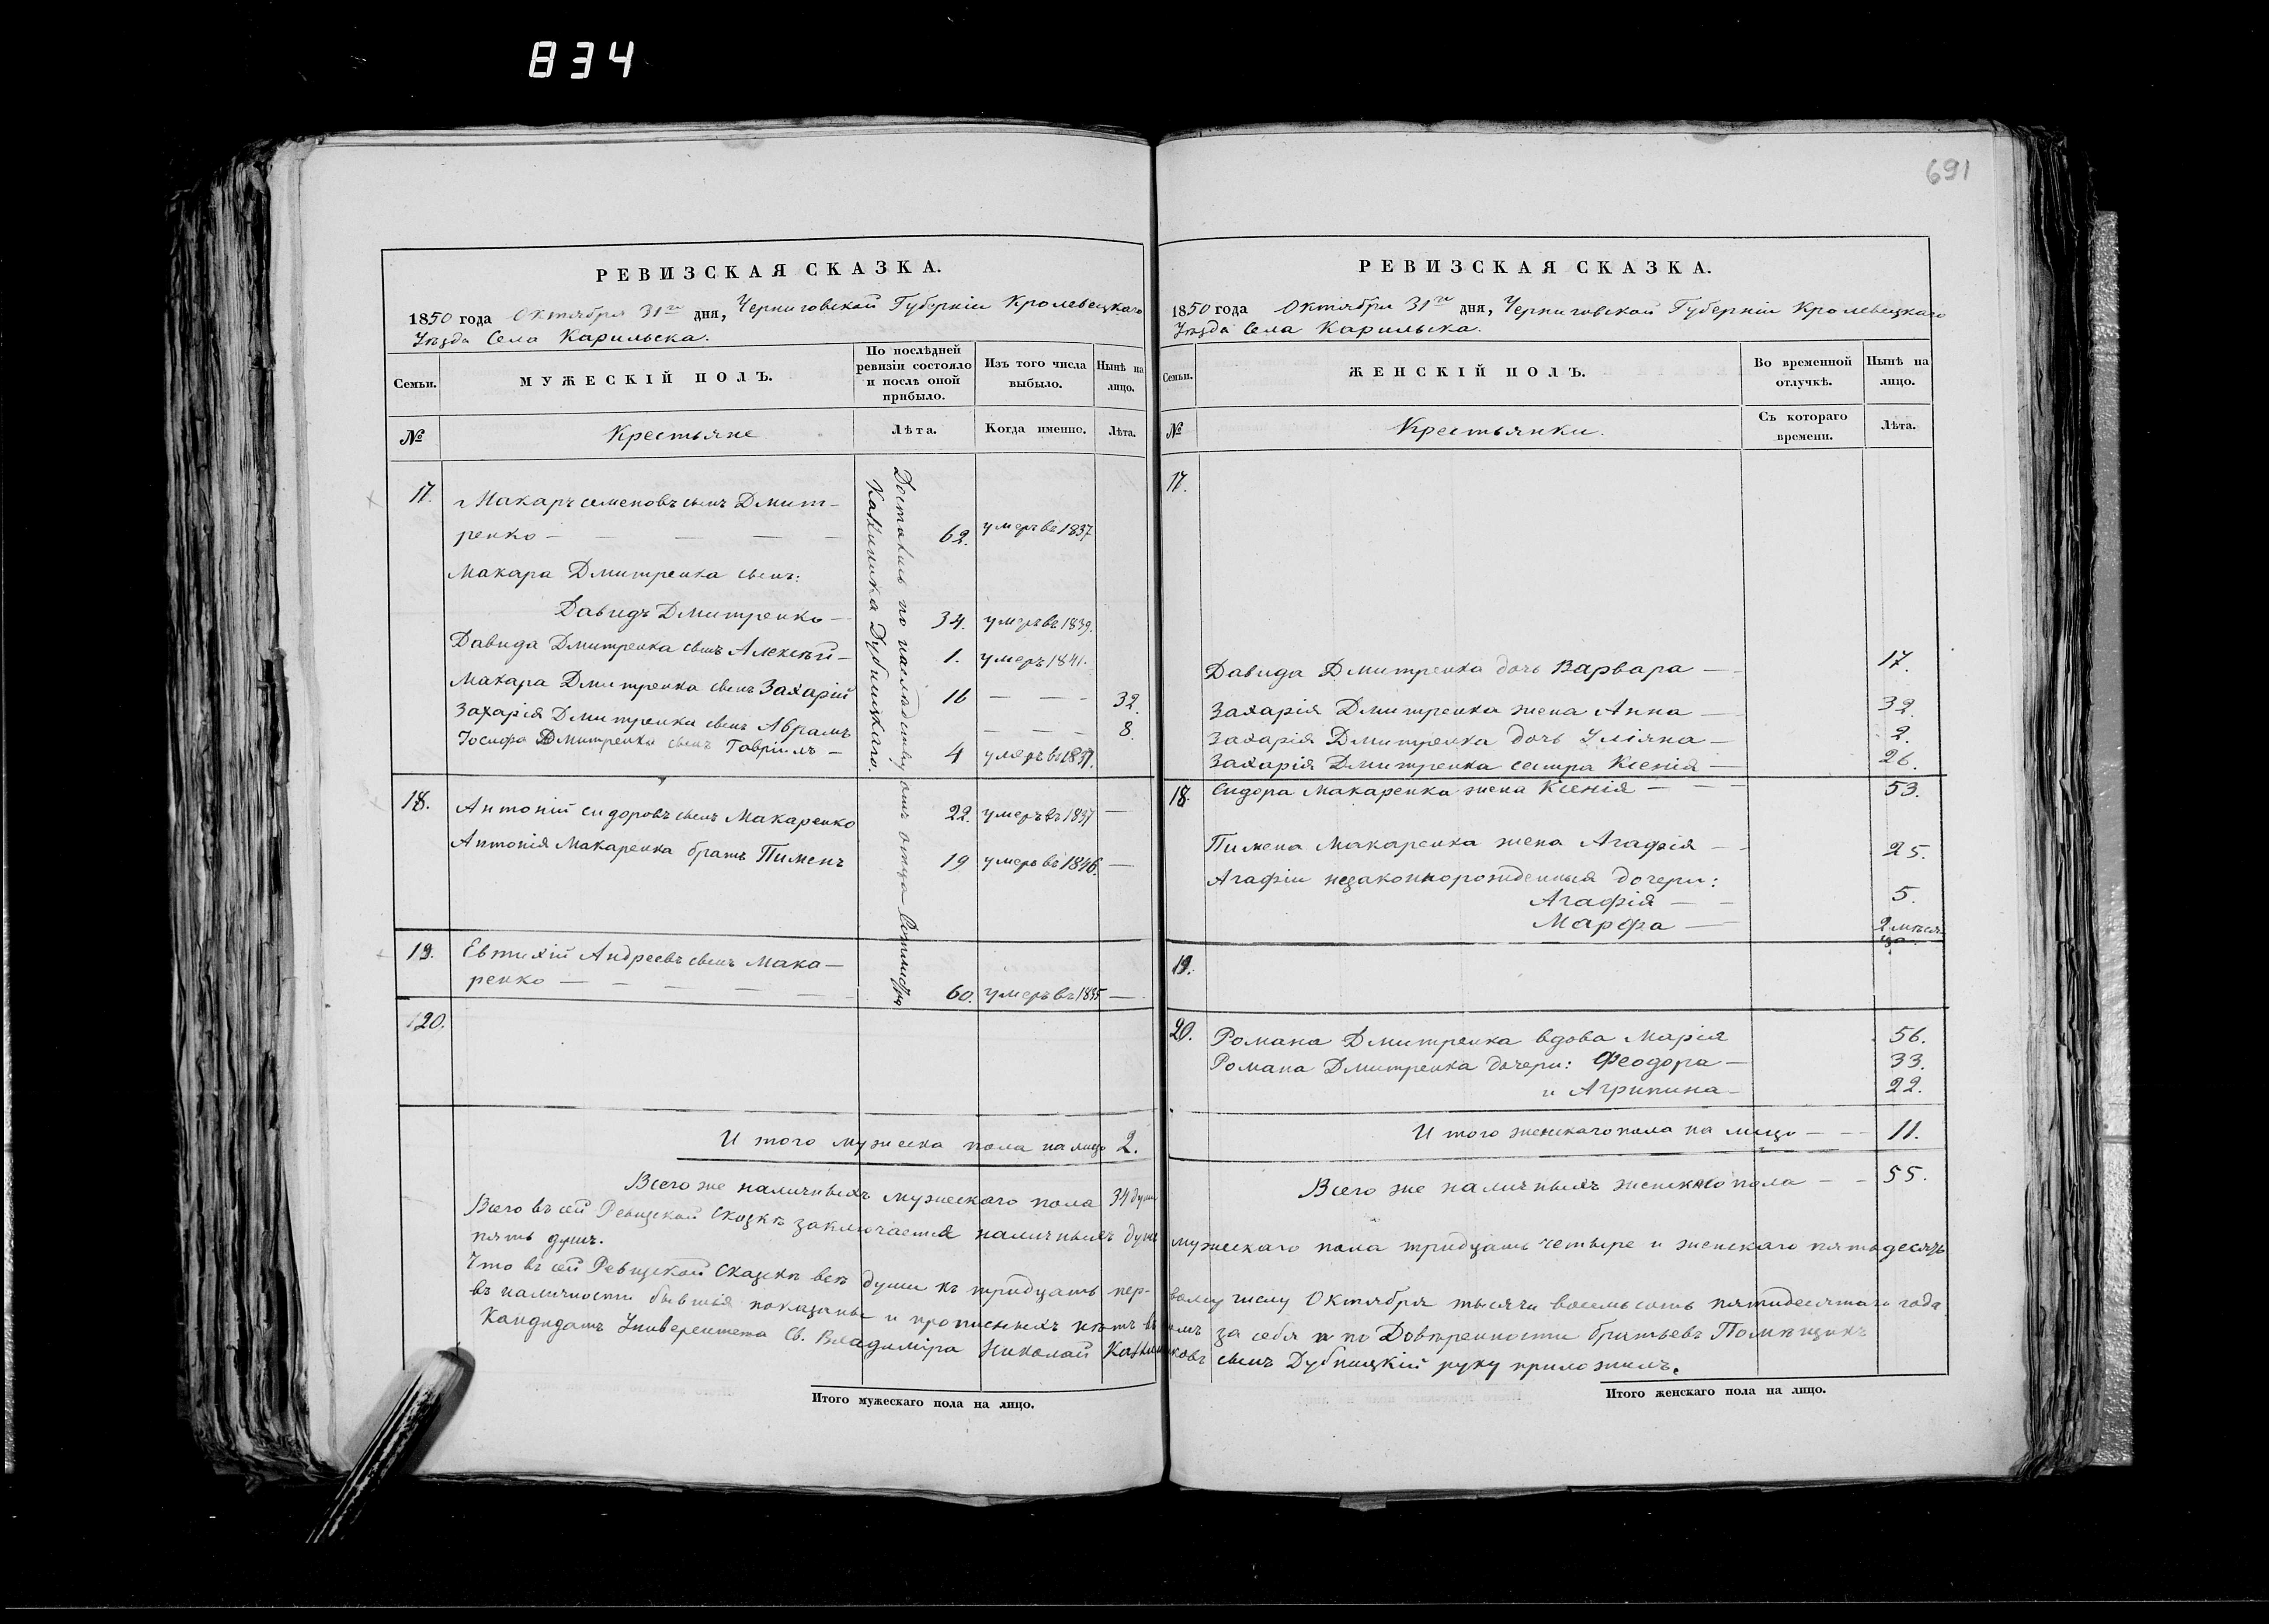 834
691
РЕВИЗСКАЯ СКАЗКА.
1850 года Октября 31го дня, Черниговской Губерніи Кролевецкаго
Уѣзда Села Карильска.
Семьи.
МУЖЕСКІЙ ПОЛЪ.
По послѣдней ревизіи состояло и послѣ оной прибыло.
Изъ того числа выбыло.
Нынѣ на лицо.
№
Крестьяне
Лѣта.
Когда именно.
Лѣта.
Достались по наслѣдству отъ отца Ротмистра
Каленика Дубницкаго.
17. Макаръ семеновъ сынъ Дмит-
ренко — 62. умеръ въ 1837
Макара Дмитренка сынъ:
Давидъ Дмитренко — 34. умеръ въ 1839.
Давида Дмитренка сынъ Алексѣй — 1. умеръ 1841.
Макара Дмитренка сынъ Захарій 16 — — — 32.
Захарія Дмитренка сынъ Абрамъ — — — 8.
Іосифа Дмитренка сынъ Гавріилъ — 4 умеръ въ 1837.
18. Антоній сидоровъ сынъ Макаренко 22. умеръ въ 1837 —
Антонія Макаренка братъ Пименъ 19 умеръ въ 1846. —
19. Евтихій Андреевъ сынъ Мака-
ренко — — — — — 60. умеръ въ 1835 —
20.
И того мужеска пола на лицо 2.
Всего же наличныхъ мужескаго пола 34 душ
РЕВИЗСКАЯ СКАЗКА.
1850 года Октября 31го дня, Черниговской Губерніи Кролевецкаго
Уѣзда Села Карильска.
Семьи.
ЖЕНСКІЙ ПОЛЪ.
Во временной отлучкѣ.
Нынѣ на лицо.
№
Крестьянки.
Съ котораго времени.
Лѣта.
17.
Давида Дмитренка дочь Варвара — 17.
Захарія Дмитренка жена Анна — 32.
Захарія Дмитренка дочь Уліяна — 2.
Захарія Дмитренка сестра Ксенія — 26.
18. Сидора Макаренка жена Ксенія — — — 53.
Пимена Макаренка жена Агафія — — 25.
Агафіи незаконнорожденныя дочери:
Агафія — — 5.
Марфа — 2 мѣся-
ца.
19.
20. Романа Дмитренка вдова Марія 56.
Романа Дмитренка дочери: Феодора — 33.
и Агрипина — 22.
И того женскаго пола на лицо — — 11.
Всего же наличныхъ женскаго пола — — 55.
Всего въ сей Ревизской Сказкѣ заключается наличныхъ душъ мужескаго пола тридцать четыре и женскаго пятьдесятъ
пять душъ.
Что въ сей Ревизской Сказкѣ всѣ души къ тридцать пер-вому числу Октября тысяча восемь сотъ пятидесятаго года
въ наличности бывшія показаны и прописныхъ нѣтъ въ томъ за себя и по Довѣренности братьевъ Помѣщикъ
Кандидатъ Университета Св. Владиміра Николай Калиниковъ сынъ Дубницкій руку приложилъ.
Итого мужескаго пола на лицо.
Итого женскаго пола на лицо.